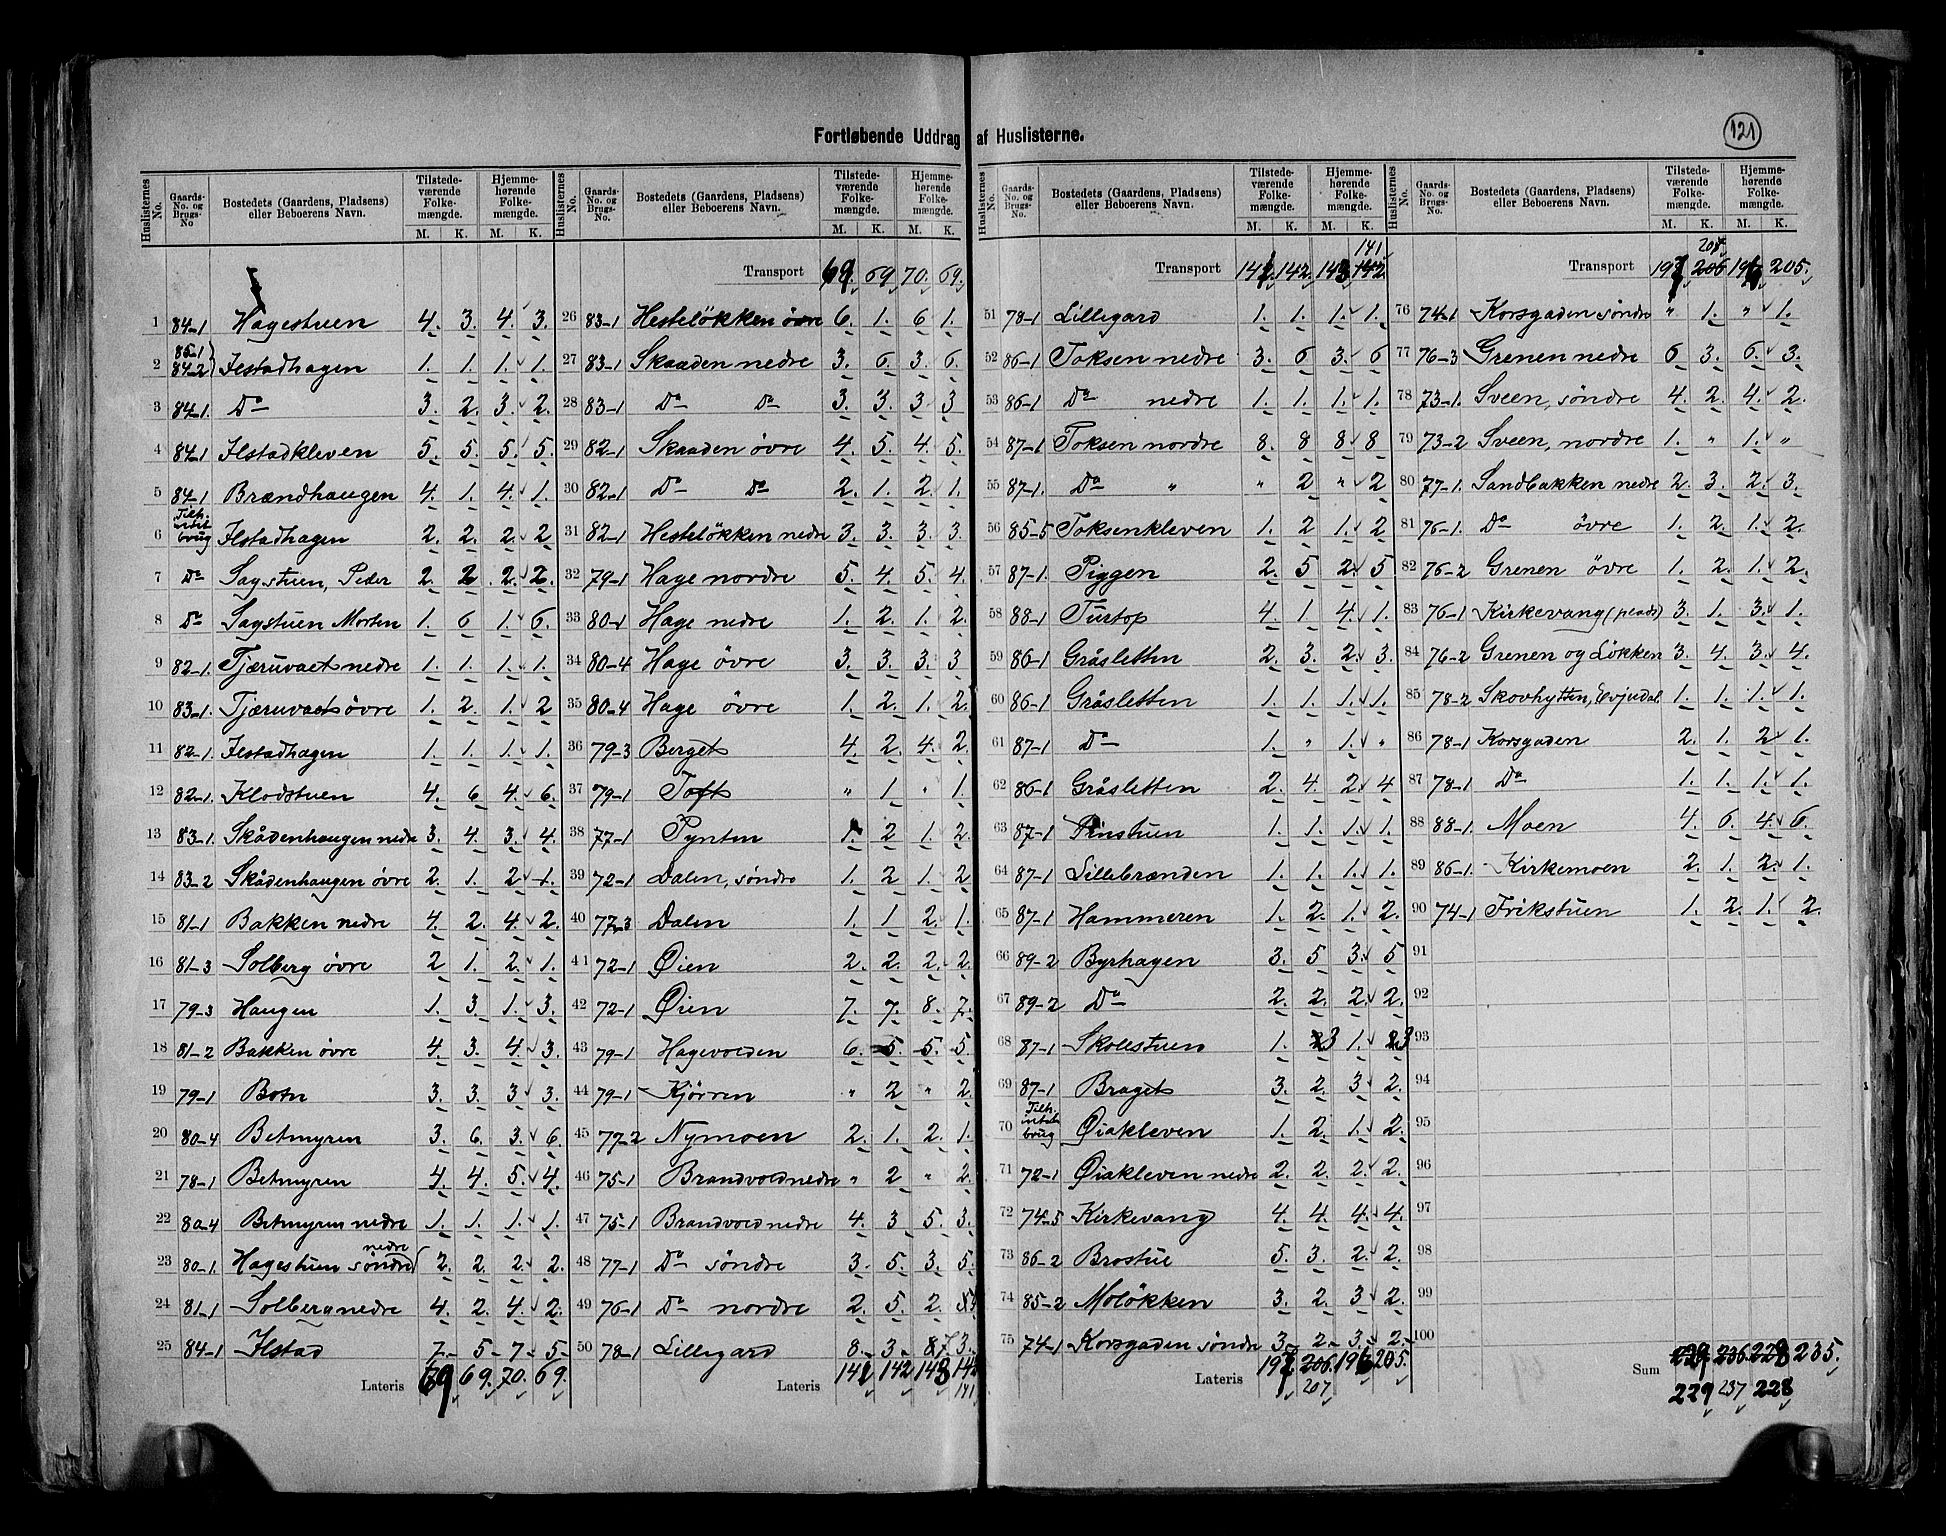 Fortløbende Uddrag af Huslisterne.
121
Huslisternes No. Gaards-No. og Brugs-No Bostedets (Gaardens, Pladsens) eller Beboerens Navn. Tilstedeværende Folkemængde. M. K. Hjemmehørende Folkemængde. M. K.
1 84-1 Hagestuen 4. 3. 4. 3.
2 85-1 84-2 Ilstadhagen 1. 1. 1. 1.
3 84-1. Do 3. 2. 3. 2.
4 84-1 Ilstadkleven 5. 5. 5. 5.
5 84-1 Brændhaugen 4. 1. 4. 1.
6 Ilstadhagen 2. 2. 2. 2
7 Do Sagstuen, Peder 2. 2. 2. 2.
8 Do Sagstuen Morten 1. 6 1. 6.
9 82-1. Tjæruvaet nedre 1. 1. 1. 1.
10 83-1. Tjæruvaet øvre 1. 2. 1. 2
11 82-1. Ilstadhagen 1. 1. 1. 1.
12 82-1. Klodstuen 4. 6 4. 6.
13 83-1. Skådenhaugen nedre 3. 4. 3. 4.
14 83-2 Skådenhaugen øvre 2. 1. 2 1.
15 81-1 Bakken nedre 4. 2. 4. 2.
16 81-3 Solberg øvre 2 1. 2. 1.
17 79-3 Haugen 1. 3. 1. 3.
18 81-2 Bakken øvre 4. 3. 4. 3.
19 79-1 Botn 3. 3. 3 3.
20 80-4 Betmyren 3. 6. 3. 6.
21 78-1 Betmyren 4. 4. 5. 4.
22 80-4 Betmyren nedre 1. 1. 1. 1.
23 80-1. Hagestuen søndre nedre 2. 2. 2. 2.
24 81-1 Solberg nedre 4. 2. 4. 2.
25 84-1 Ilstad 7. 5. 7. 5.
Lateris 69 69. 70. 69.
Huslisternes No. Gaards-No. og Brugs-No. Bostedets (Gaardens, Pladsens) eller Beboerens Navn. Tilstedeværende Folkemængde. M. K. Hjemmehørende Folkemængde. M. K.
Transport 69. 69 70. 69.
26 83-1 Hesteløkken øvre 6. 1. 6 1.
27 83-1 Skaaden nedre 3. 6. 3. 6.
28 83-1 Do Do 3. 3. 3 3
29 82-1 Skaaden øvre 4 5. 4. 5.
30 82-1 Do Do 2. 1. 2. 1.
31 82-1 Hesteløkken nedre 3. 3. 3. 3.
32 79-1 Hage nordre 5. 4. 5. 4.
33 80-1 Hage nedre 1. 2. 1. 2.
34 80-4 Hage øvre 3. 3. 3. 3
35 80-4 Hage øvre 1. 2. 1. 2.
36 79-3 Berget 4. 2. 4. 2.
37 79-1 Toft " 1. " 1.
38 77-1 Pynten 1. 2 1. 2.
39 72-1 Dalen, søndre 1. 2 1. 2
40 77-3 Dalen 1. 1 2. 1.
41 72-1 Øien 2. 2. 2. 2.
42 72-1 Øien 7. 7. 8. 7.
43 79-1 Hagevolden 6. 5. 5. 5.
44 79-1 Kjørren " 2 " 2.
45 79-2 Nymoen 2. 1. 2. 1.
46 75-1 Brandvold nedre " 2 " 2.
47 75-1 Brandvold nedre 4. 3 5. 3.
48 77-1 Do søndre 3. 5. 3. 5.
49 76-1 Do nordre 2. 5. 2.
50 78-1 Lillegard 8. 3. 3.
Lateris 142 142 143 142
141
Huslisternes No. Gaards-No. og Brugs-No. Bostedets (Gaardens, Pladsens) eller Beboerens Navn. Tilstedeværende Folkemængde. M. K. Hjemmehørende Folkemængde. M. K.
141
Transport 142. 142. 143 142
51 78-1 Lillegard 1. 1. 1. 1.
52 86-1 Toksen nedre 3. 6 3. 6
53 86-1 Do nedre 1. 1. 1. 1.
54 87-1 Toksen nordre 8. 8 8 8
55 87-1. Do " " 2 " 2
56 85-5 Toksenkleven 1. 2 1. 2
57 87-1. Piggen 2. 5 2. 5
58 88-1 Turtop 4. 1 4. 1.
59 86-1 Gråsletten 2. 3. 2. 3.
60 86-1 Gråsletten 1. 1. 1. 1.
61 87-1 Do 1. " 1. "
62 86-1 Gråsletten 2. 4. 2 4
63 87-1 Finstuen 1. 1. 1. 1.
64 87-1 Lillebrænden 1. 1. 1. 1.
65 87-1 Hammeren 1. 2. 1. 2.
66 89-2 Byrhagen 3. 5 3. 5
67 89-2 Do 2. 2. 2. 2.
68 87-1 Skolestuen 1. 3 1. 3
69 87-1 Braget 3. 2. 3 2.
70 Øiakleven 1. 2. 1. 2.
71 72-1 Øiakleven nedre 2. 2. 2. 2.
72 74-5 Kirkevang 4. 4. 4. 4.
73 86-2 Brostue 5. 3. 2. 2.
74 85-2 Moløkken 3. 2. 3 2.
75 74-1 Korsgaden søndre 3. 2. 3. 2.
197 206. 196 205.
207
Huslisternes No. Gaards-No. og Brugs-No. Bostedets (Gaardens, Pladsens) eller Beboerens Navn. Tilstedeværende Folkemængde. M. K. Hjemmehørende Folkemængde. M. K.
207
Transport 197 206 196 205.
76 74-1 Korsgaden søndre " 1. " 1.
77 76-3 Grenen nedre 6 3. 6. 3.
78 73-1. Sveen, søndre 4. 2. 4. 2.
79 73-2 Sveen, nordre 1. " 1. "
80 77-1. Sandbakken nedre 2. 3. 2. 3.
81 76-1. Do øvre 1. 2. 1. 2.
82 76-2 Grenen øvre 1. 2. 1. 2.
83 76-1 Kirkevang (plads) 3. 1. 3. 1.
84 76-2 Grenen og Løkken 3. 4. 3. 4.
85 78-2 Skovhytten, Evjudal 1. 1. 1. 1.
86 78-1 Korsgaden 2. 1. 2 1.
87 78-1 Do 1. 1. 1. 1.
88 88-1. Moen 4. 6. 4. 6.
89 86-1. Kirkemoen 2. 1. 2. 1.
90 74-1 Frikstuen 1. 2. 1. 2.
91
92
93
94
95
96
97
98
99
100
Sum 229 236. 228 235.
229 237 228